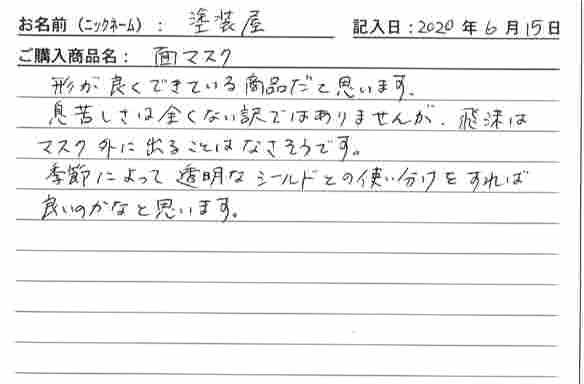 お名前（ニックネーム）： 塗装屋 記入日：2020年6月15日
ご購入商品名： 面マスク
形が良くできている商品だと思います。
息苦しさは全くない訳ではありませんが、飛沫は
マスク外に出ることはなさそうです。
季節によって透明なシールドとの使い分けをすれば
良いのかなと思います。